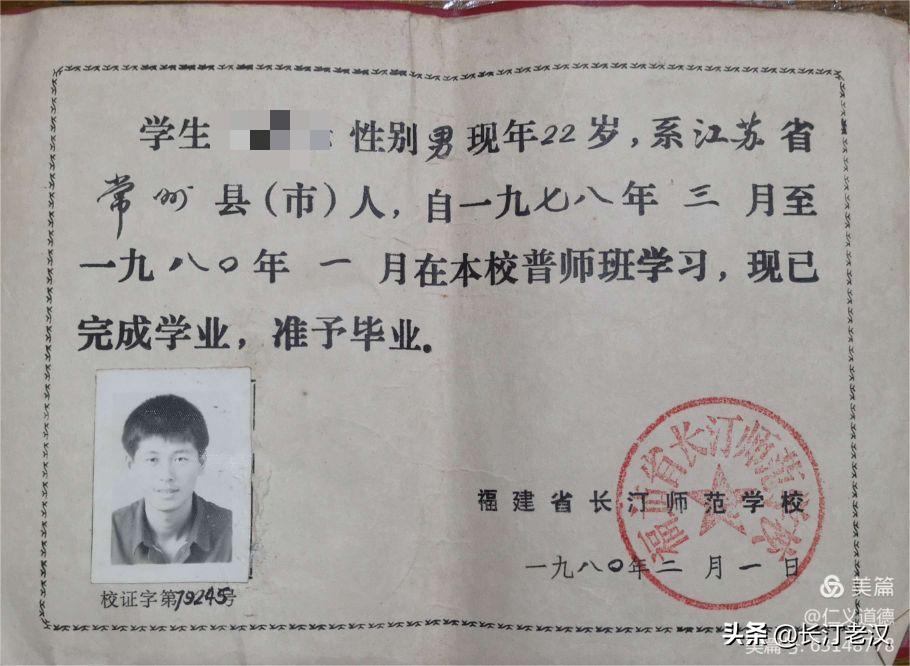 学生 性别男现年22岁，系江苏省
常州县（市）人，自一九七八年三月至
一九八〇年一月在本校普师班学习，现已
完成学业，准予毕业。
福建省长汀师范学校
福建省长汀师范学校
一九八〇年二月一日
校证字第79245号
美篇
@仁义道德
美篇号: 63148778
头条 @长汀老汉